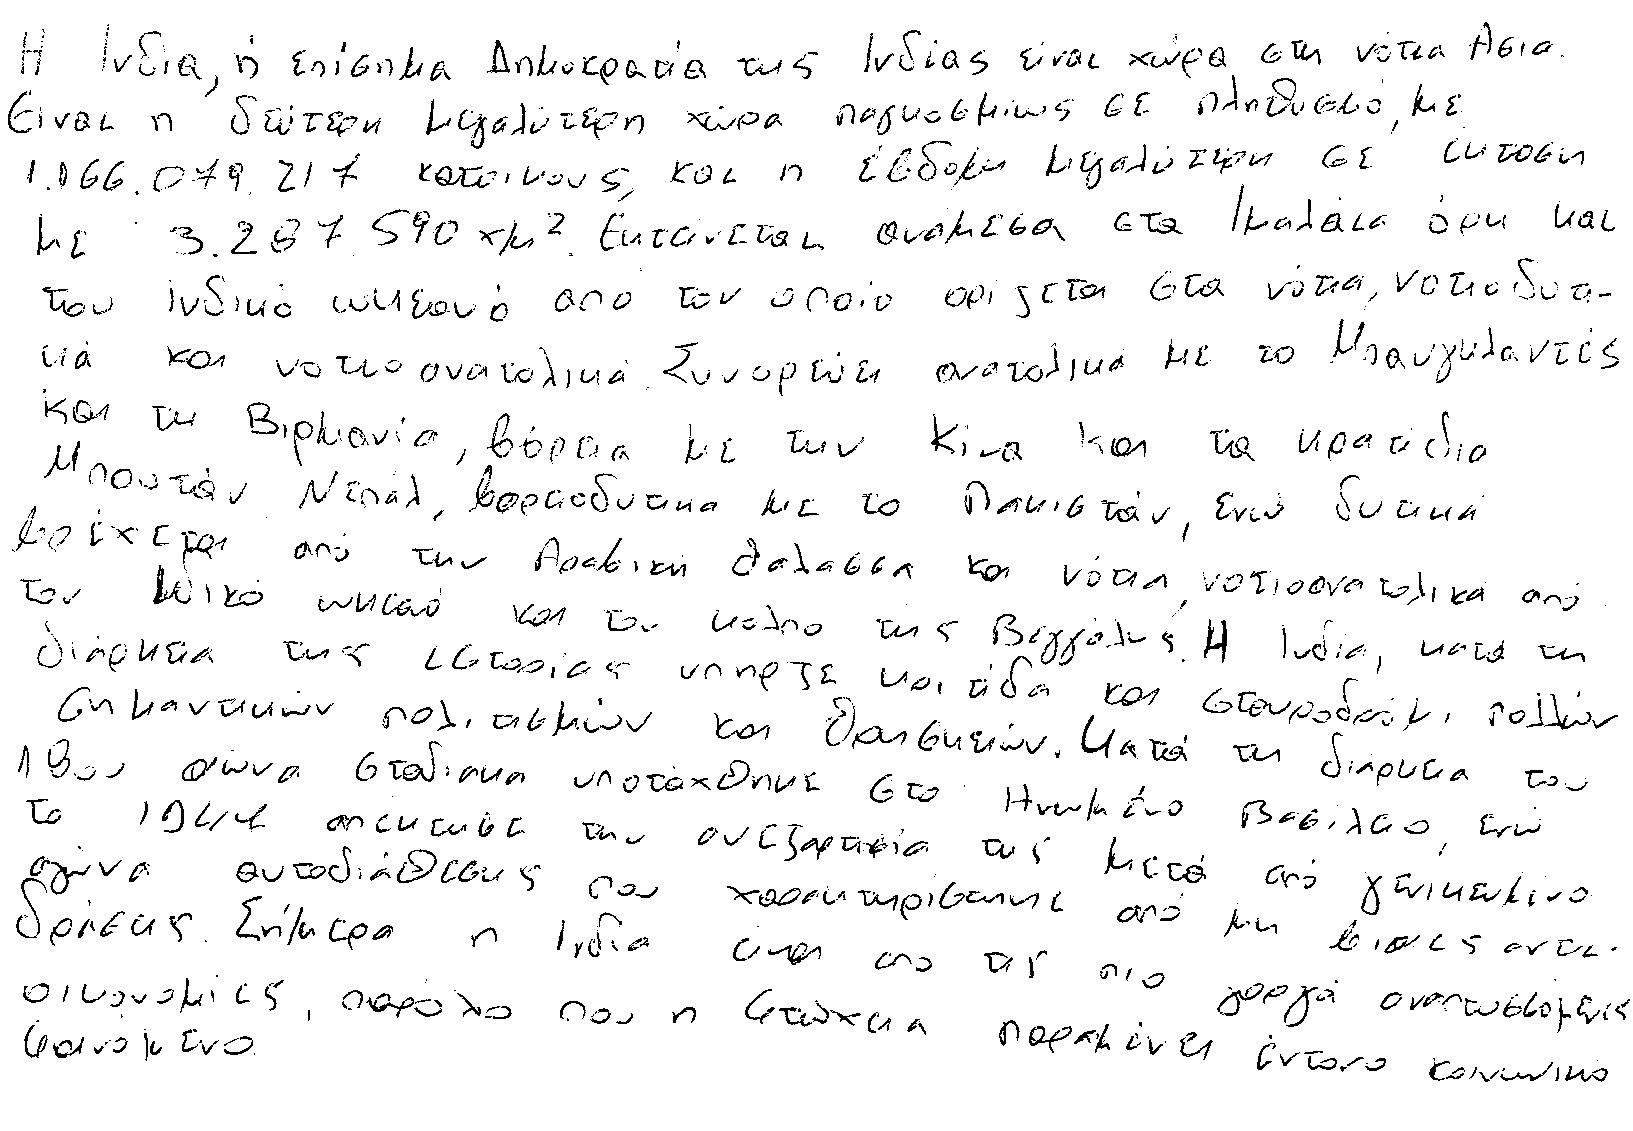 Η Ινδία, ή επίσημα Δημοκρατία της Ινδίας είναι χώρα στη νότια Ασία.
Είναι η δεύτερη μεγαλύτερη χώρα παγκοσμίως σε πληθυσμό, με
1.166.079.217 κατοίκους, και η έβδομη μεγαλύτερη σε έκταση
με 3.287.590 χμ². Εκτείνεται ανάμεσα στα Ιμαλάια όρη και
τον Ινδικό ωκεανό από τον οποίο ορίζεται στα νότια, νοτιοδυτι-
κά και νοτιοανατολικά. Συνορεύει ανατολικά με το Μπαγκλαντές
και τη Βιρμανία, βόρεια με την Κίνα και τα κρατίδια
Μπουτάν Νεπάλ, βορειοδυτικα με το Πακιστάν, ενώ δυτικά
βρέχεται από την Αραβική θάλασσα και νότια, νοτιοανατολικά από
τον ωκεανό και τον κολπο της Βεγγάλης. Η Ινδία, κατά τη
διάρκεια της ιστορίας υπήρξε κοιτίδα και σταυροδρόμι πολλών
σημαντικών πολιτισμών και θρησκειών. Κατά τη διάρκεια του
18ου αιώνα σταδιακα υποτάχθηκε στο Ηνωμένο Βασίλειο, ενώ
το 1947 απέκτησε την ανεξαρτησία της μετά από γενικευμένο
αγώνα αυτοδιάθεσης που χαρακτηρίστηκε από μη βίαιες αντι-
δράσεις. Σήμερα η Ινδία είναι από τις πιο γοργά αναπτυσσόμενες
οικονομίες, παρόλο που η φτώχεια παραμένει έντονο κοινωνικό
φαινόμενο.